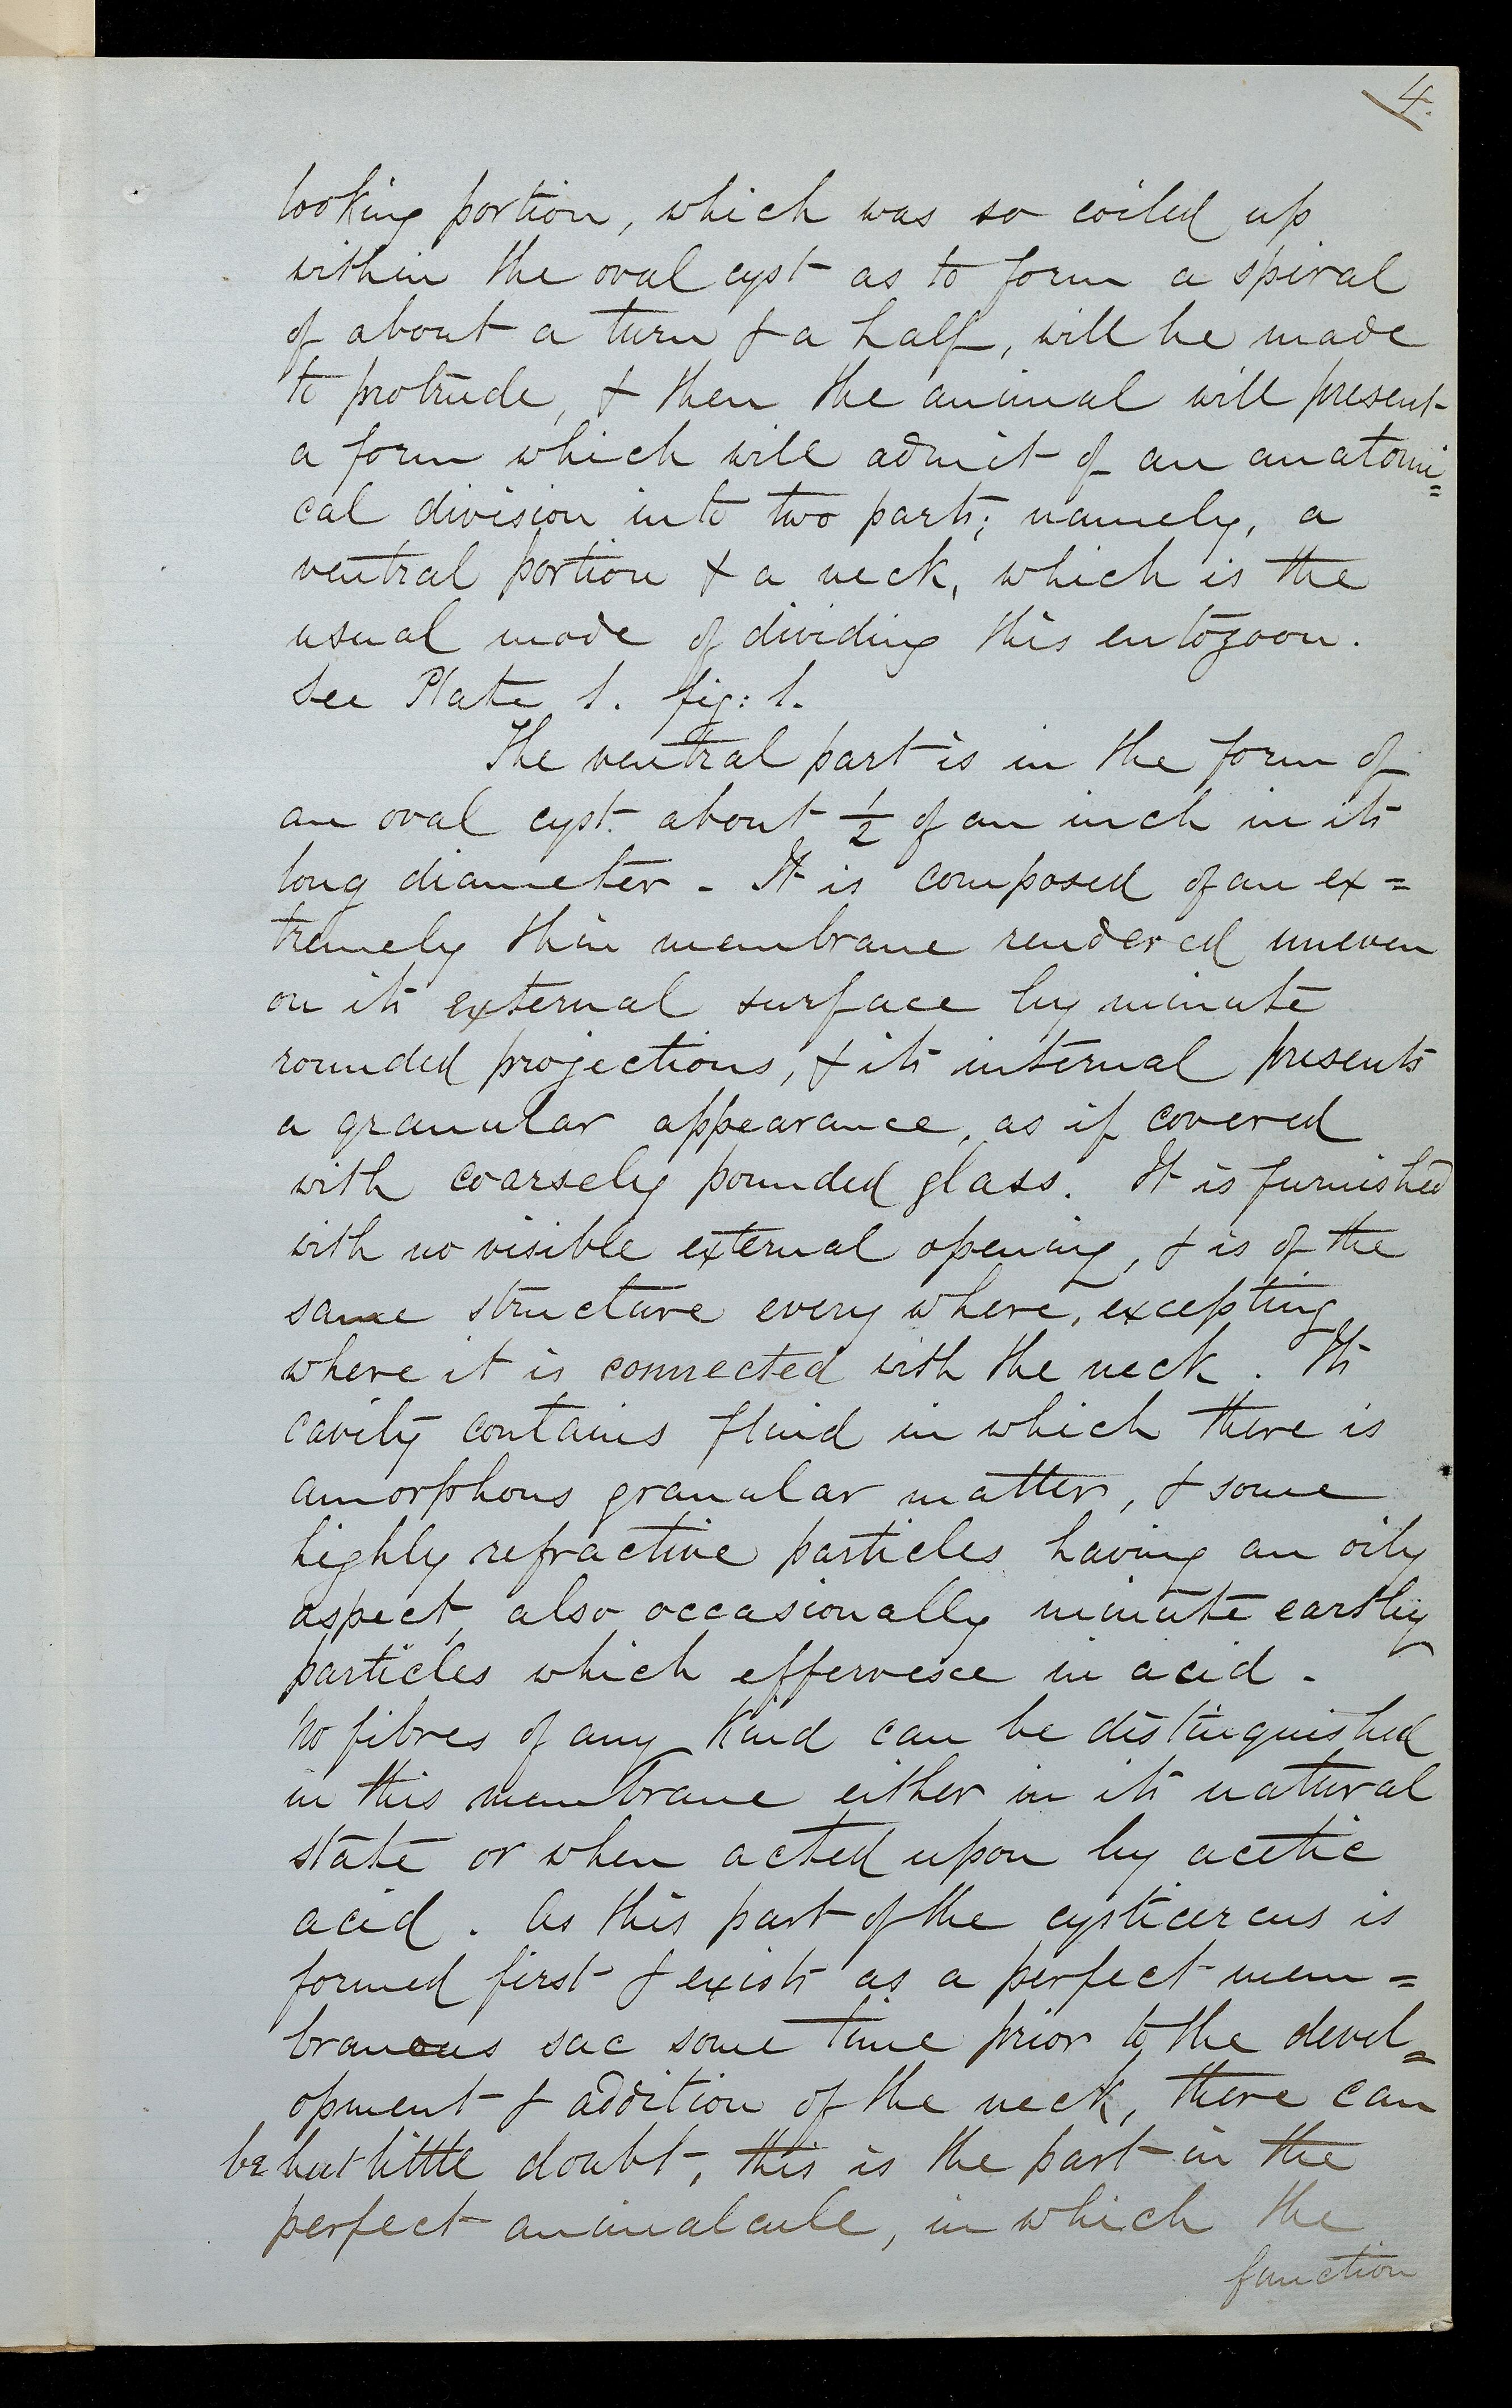 4.
looking portion, which was so coiled up
within the oval cyst as to form a spiral
of about a turn & a half, will be made
to protrude, & then the animal will present
a form which will admit of an anatomi=
cal division into two parts; namely, a
ventral portion & a neck, which is the
usual mode of dividing this entozoon.
See Plate 1. fig: 1.
The ventral part is in the form of
an oval cyst about 1/2 of an inch in its
long diameter - It is composed of an ex=
tremely thin membrane rendered uneven
on its external surface by minute
rounded projections, & its internal presents
a granular appearance, as if covered
with coarsely pounded glass. It is furnished
with no visible external opening, & is of the
same structure every where, excepting
where it is connected with the neck. Its
cavity contains fluid in which there is
amorphous granular matter, & some
highly refractive particles having an oily
aspect, also occasionally minute earthy
particles which effervesce in acid -
No fibres of any kind can be distinguished
in this membrane either in its natural
state or when acted upon by acetic
acid. As this part of the cysticercus is
formed first & exists as a perfect mem=
branous sac some time prior to the devel=
opment & addition of the neck, there can
be but little doubt, this is the part in the
perfect animalcule, in which the
function